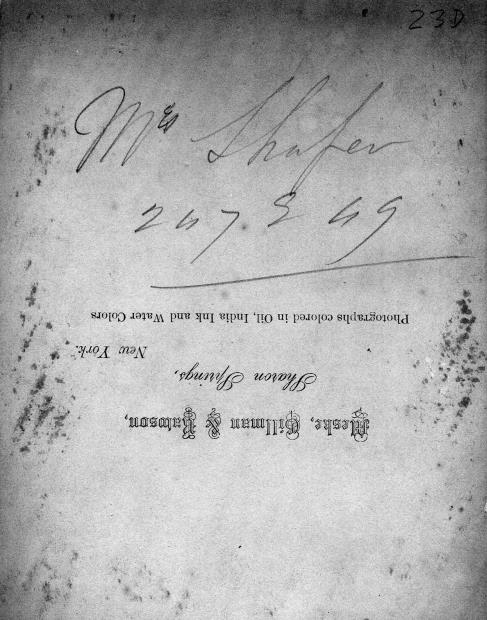 23D
Mrs Shafer
247 E 49
Meske, Gillman & Rawson,
Sharon Springs,
New York.
Photographs colored in Oil, India Ink and Water Colors